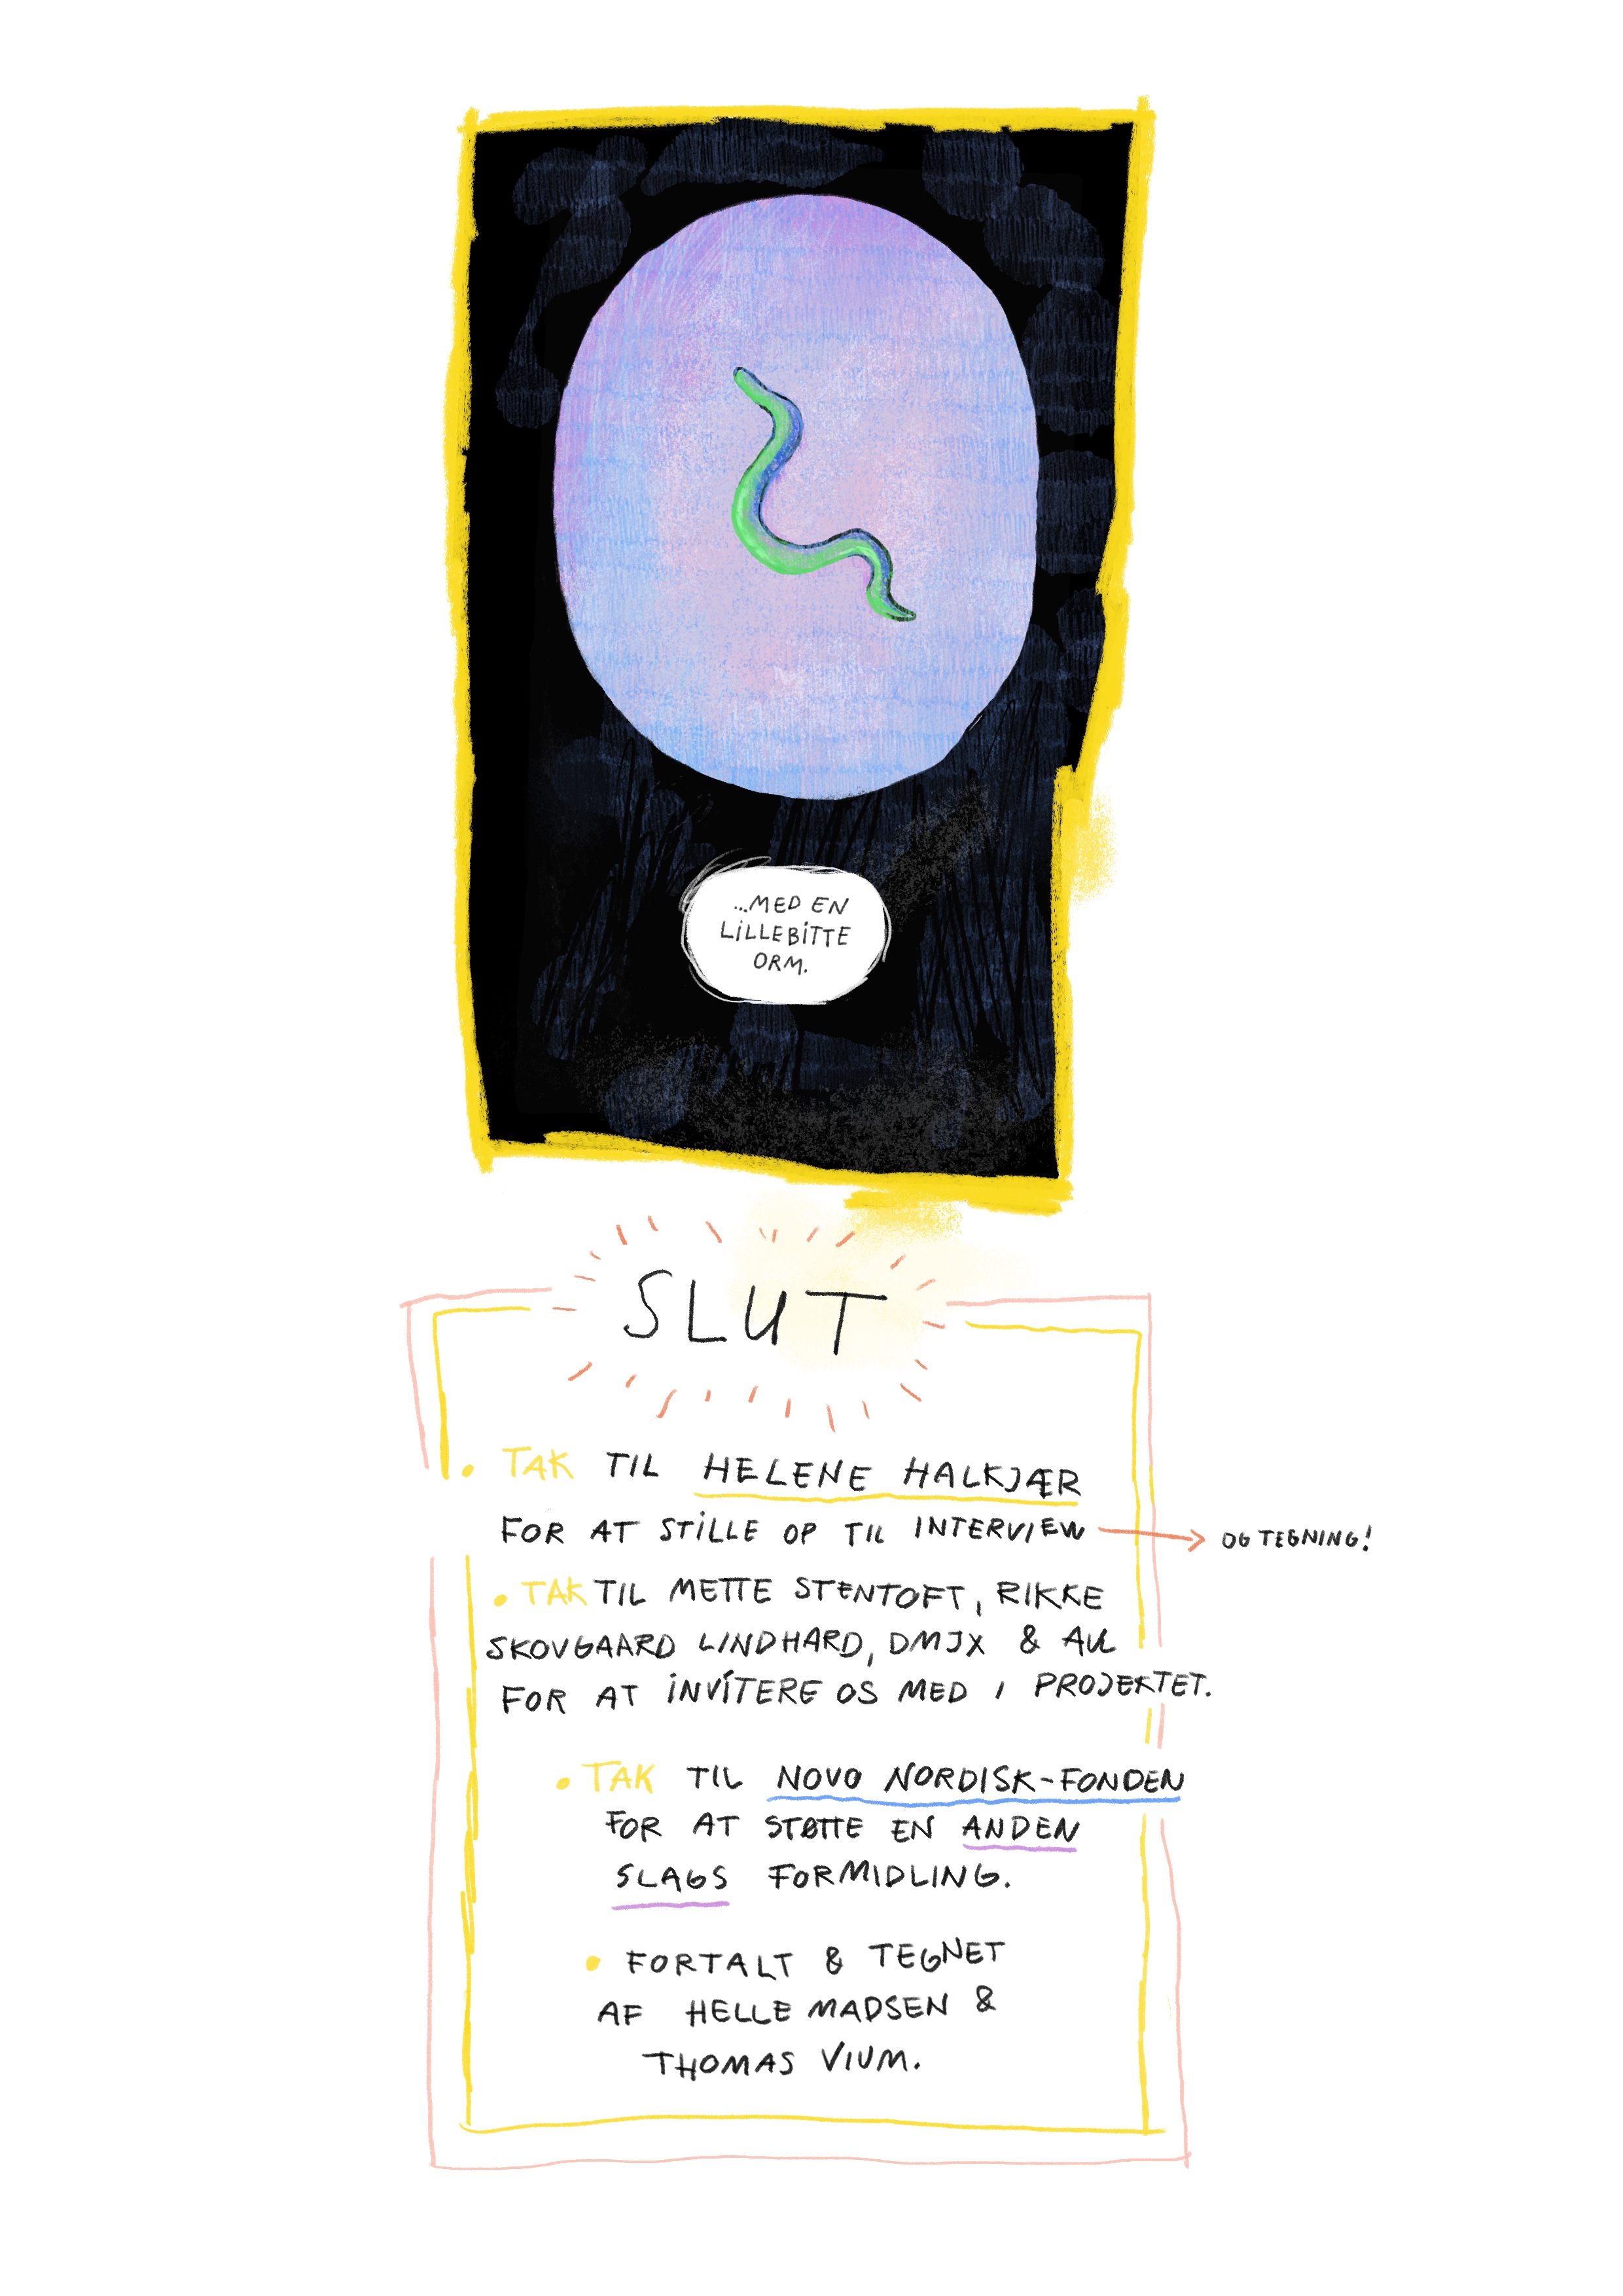 ...MED EN
LILLEBITTE
ORM.
SLUT
• TAK TIL HELENE HALKJÆR
FOR AT STILLE OP TIL INTERVIEW → OG TEGNING!
• TAK TIL METTE STENTOFT, RIKKE
SKOVGAARD LINDHARD, DMJX & AU
FOR AT INVITERE OS MED I PROJEKTET.
• TAK TIL NOVO NORDISK-FONDEN
FOR AT STØTTE EN ANDEN
SLAGS FORMIDLING.
• FORTALT & TEGNET
AF HELLE MADSEN &
THOMAS VIUM.